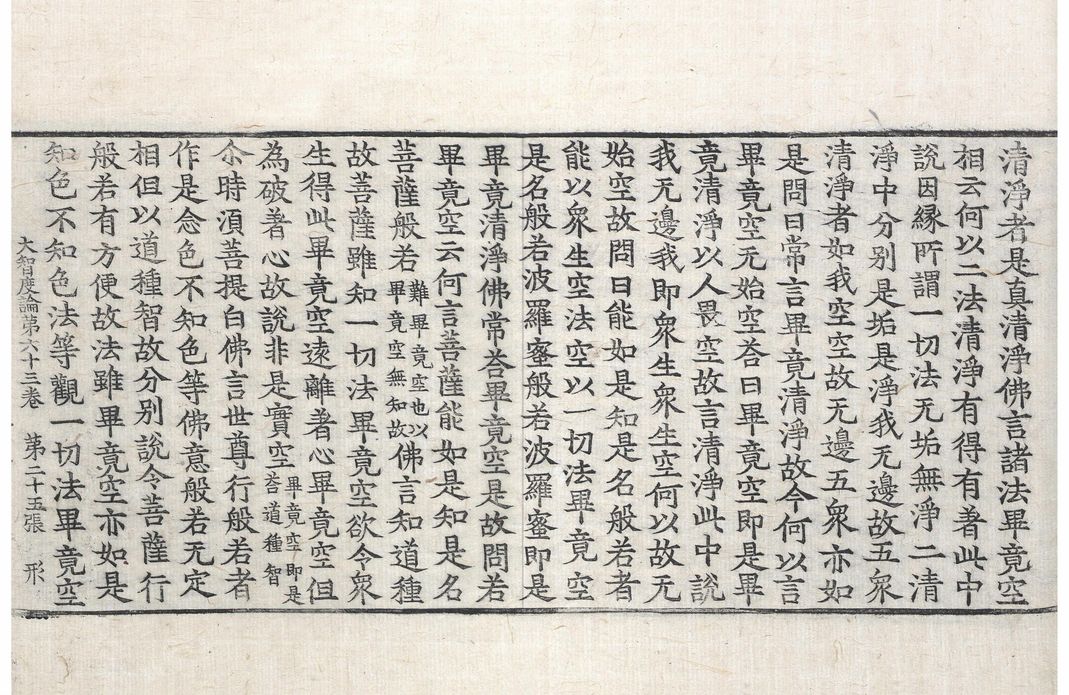 清淨者是真清淨佛言諸法畢竟空
相云何以二法清淨有得有著此中
說因縁所謂一切法无垢無淨二清
淨中分别是垢是淨我无邊故五衆
清淨者如我空空故无邊五衆亦如
是問曰常言畢竟清淨故今何以言
畢竟空无始空荅曰畢竟空即是畢
竟清淨以人畏空故言清淨此中說
我无邊我即衆生衆生空何以故无
始空故問曰能如是知是名般若者
能以衆生空法空以一切法畢竟空
是名般若波羅蜜般若波羅蜜即是
畢竟清淨佛常荅畢竟空是故問若
畢竟空云何言菩薩能如是知是名
菩薩般若難畢竟空也以畢竟空無知故佛言知道種
故菩薩雖知一切法畢竟空欲令衆
生得此畢竟空遠離著心畢竟空但
為破著心故說非是實空畢竟空即是荅道種智
尒時湏菩提白佛言世尊行般若者
作是念色不知色等佛意般若无定
相但以道種智故分别說令菩薩行
般若有方便故法雖畢竟空亦如是
知色不知色法等觀一切法畢竟空
大智度論第六十三卷 第二十五張 形